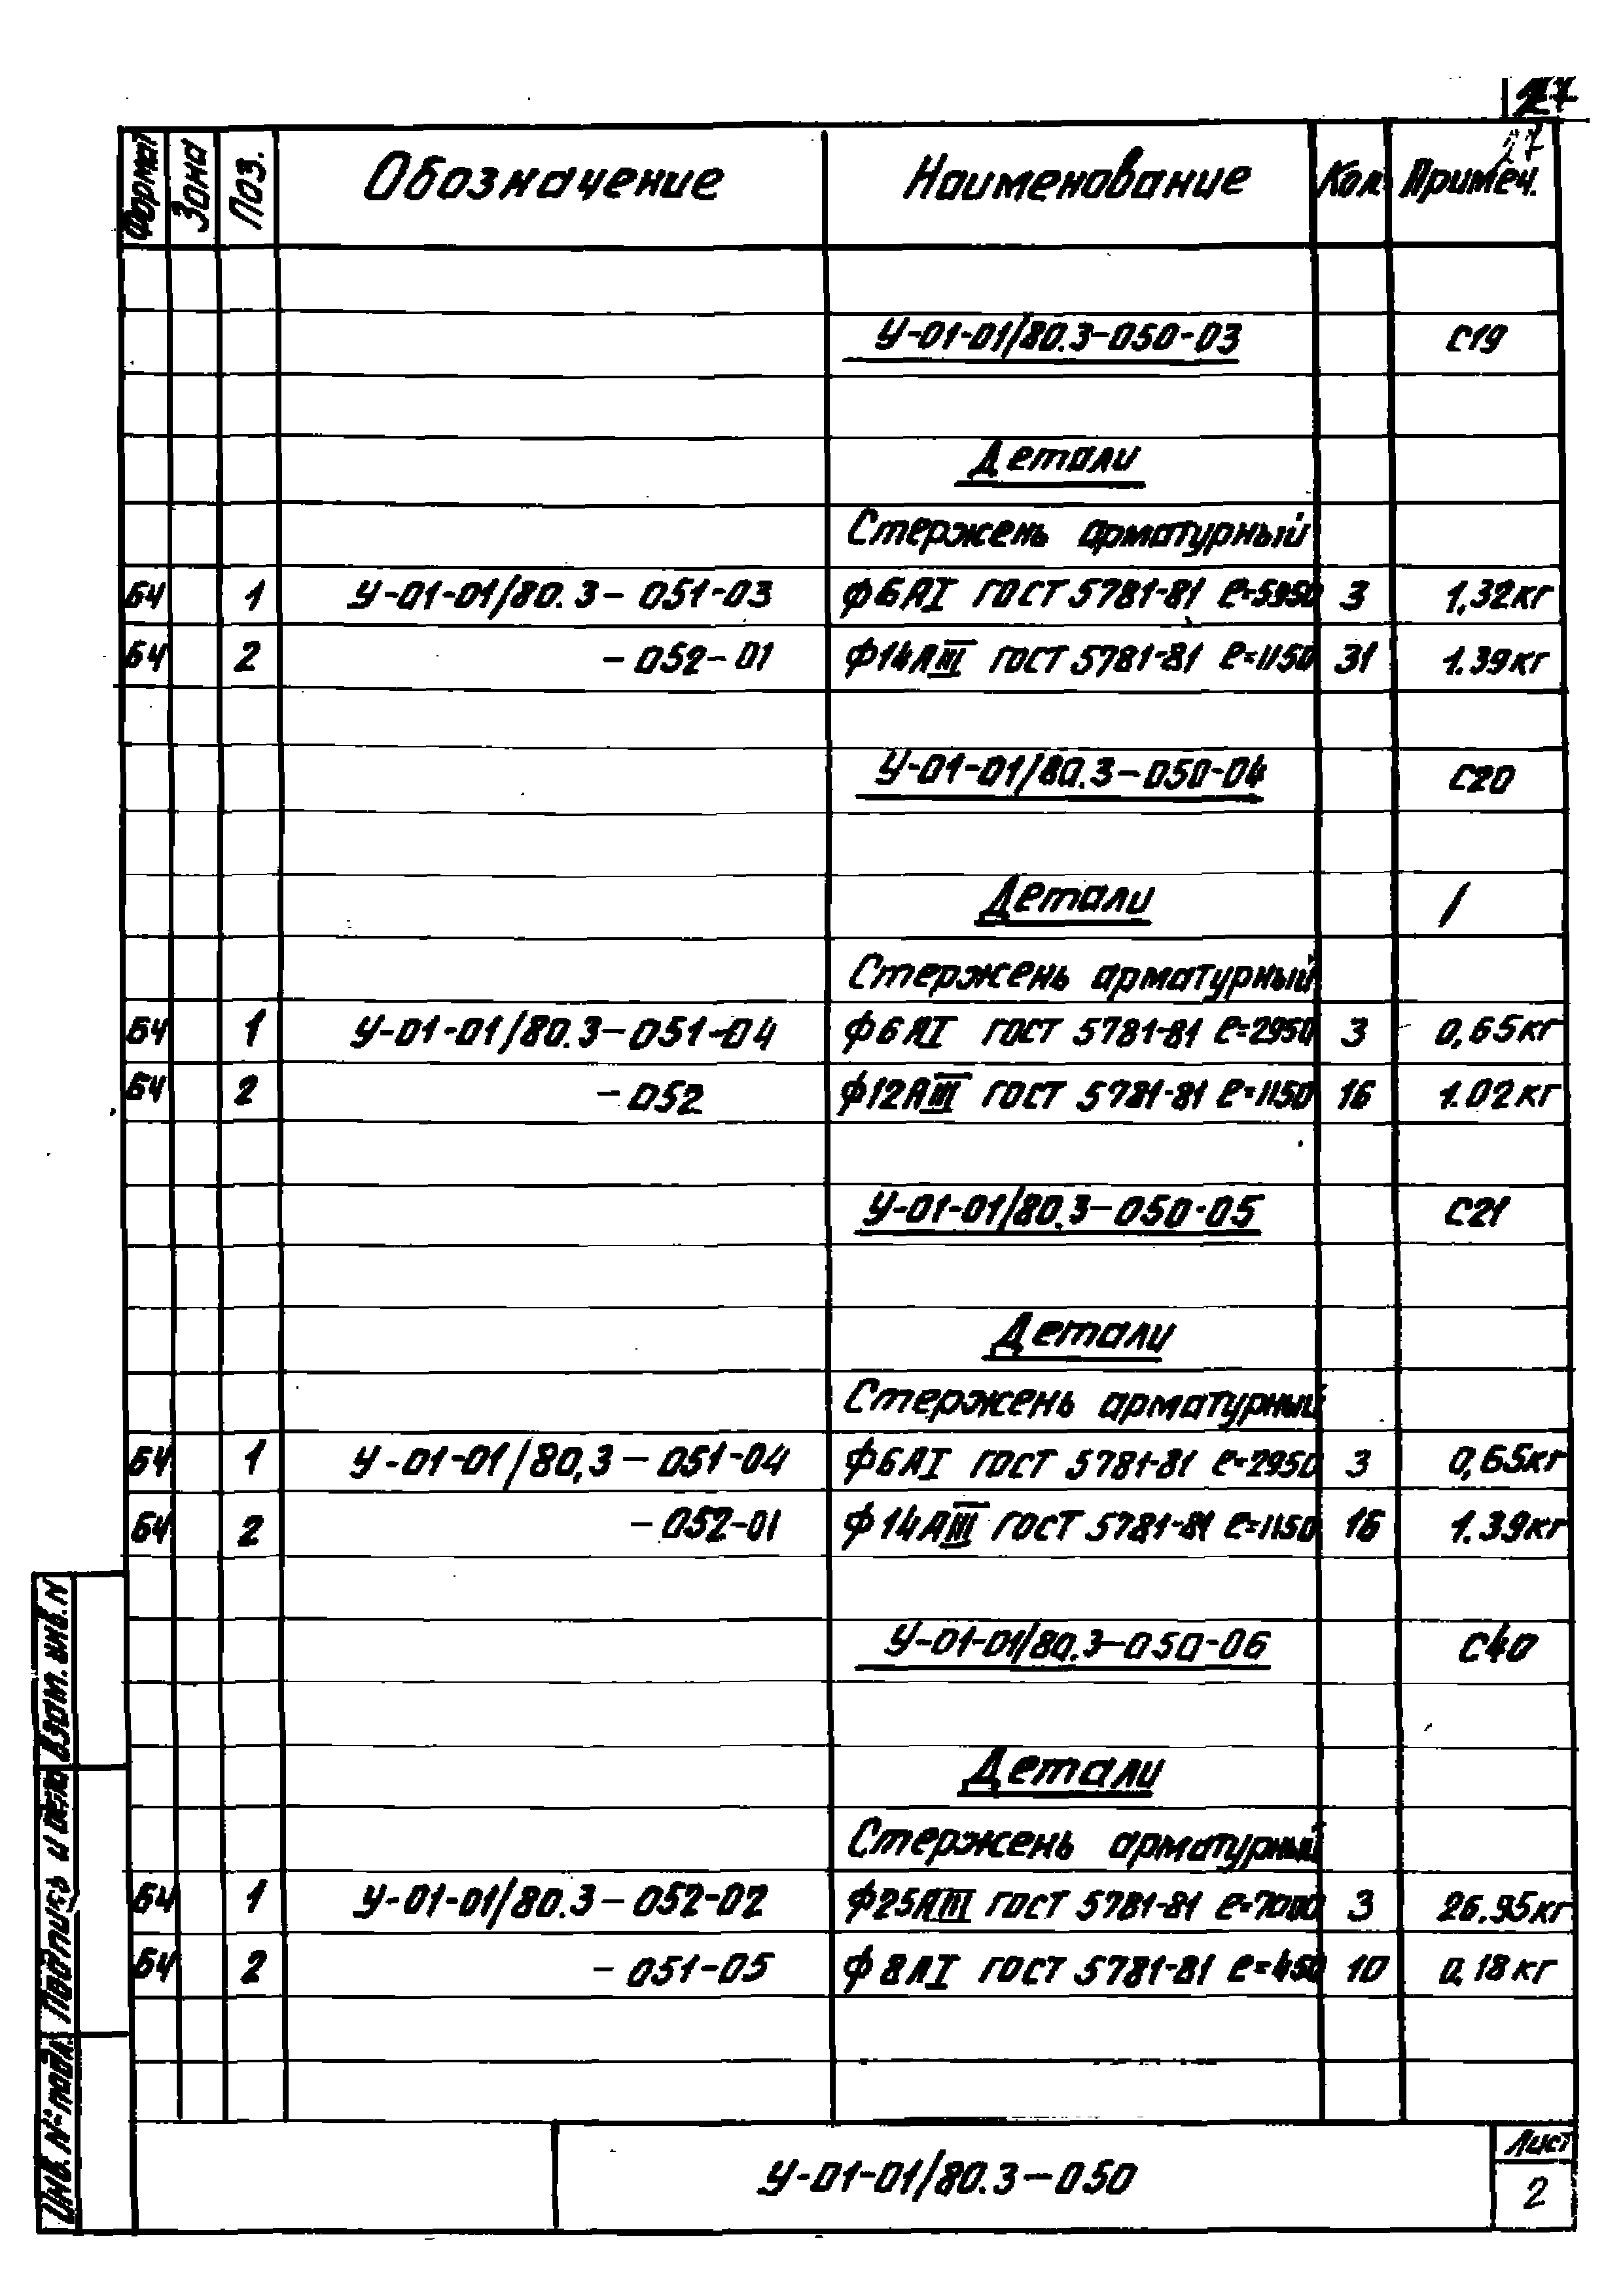 27
27
Формат Зона Поз. Обозначение Наименование Кол. Примеч.
У-01-01/80.3-050-03 С19
Детали
Стержень арматурный
БЧ 1 У-01-01/80.3-051-03 Ф6АI ГОСТ 5781-81 ℓ=5950 3 1,32кг
БЧ 2 -052-01 Ф14АIII ГОСТ 5781-81 ℓ=1150 31 1.39кг
У-01-01/80.3-050-04 С20
Детали /
Стержень арматурный
БЧ 1 У-01-01/80.3-051-04 Ф6АI ГОСТ 5781-81 ℓ=2950 3 0,65кг
БЧ 2 -052 Ф12АIII ГОСТ 5781-81 ℓ=1150 16 1.02кг
У-01-01/80.3-050-05 С21
Детали
Стержень арматурный
БЧ 1 У-01-01/80,3-051-04 Ф6АI ГОСТ 5781-81 ℓ=2950 3 0,65кг
БЧ 2 -052-01 Ф14АIII ГОСТ 5781-81 ℓ=1150 16 1.39кг
У-01-01/80.3-050-06 С40
Детали
Стержень арматурный
БЧ 1 У-01-01/80.3-052-02 Ф25АIII ГОСТ 5781-81 ℓ=7000 3 26.95кг
БЧ 2 -051-05 Ф8АI ГОСТ 5781-81 ℓ=450 10 0,18кг
Взам. инв. N
Подпись и дата
Инв. N° подл.
У-01-01/80.3-050
Лист
2